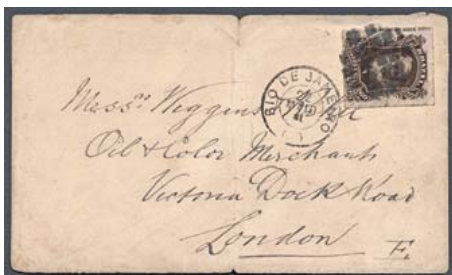 RIO DE JANEIRO
Messrs Wiggens
Oil & Color Merchants
Victoria Dock Road
London